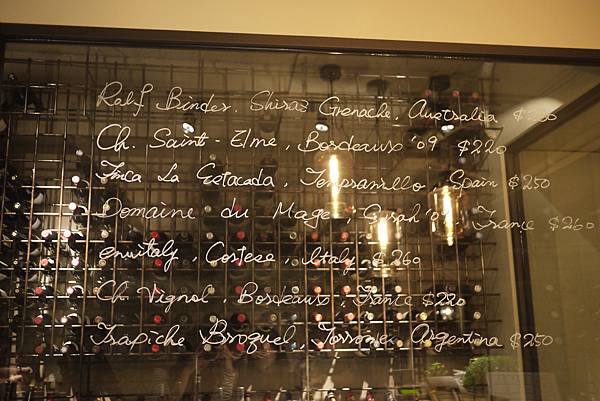 Ralf Binder, Shiraz Grenache, Australia $
Ch. Saint-Elme, Bordeauxso '09 $220
Finca La Estacada, Tempranillo, Spain $250
Domaine du Mage, Syrah '0 France $260
envitaly, Cortese, Italy $260
Ch. Vignol, Bordeaux, France $220
Trapiche Broquel, Torrone, Argentina $250